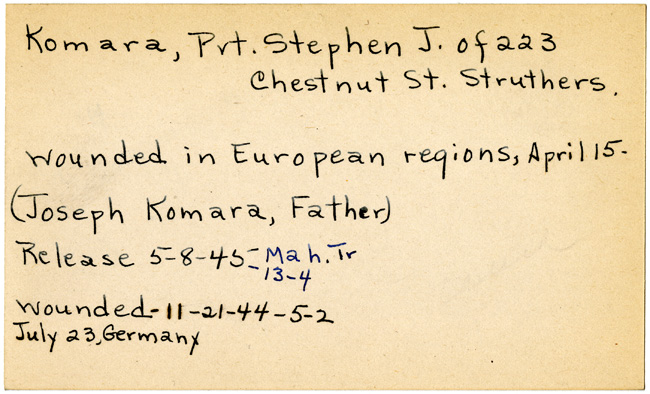 Komara, Pvt. Stephen J. of 223
Chestnut St. Struthers.
wounded in European regions, April 15-
(Joseph Komara, Father)
Release 5-8-45- Mah. Tr
13-4
wounded-11-21-44-5-2
July 23, Germany